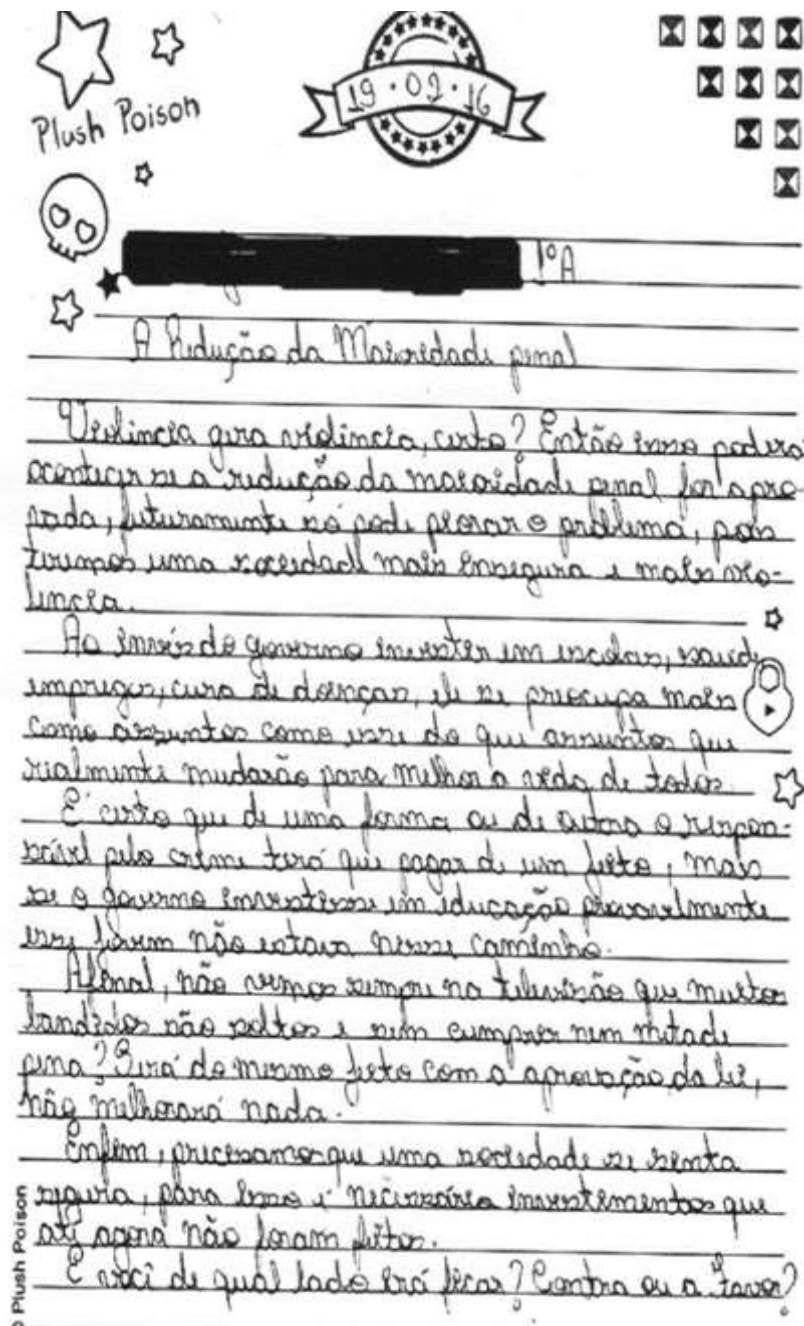 Plush Poison
19.02.16
1º A
A Redução da Maioridade penal
Violência gera violência, certo? Então isso poderá
acontecer se a redução da maioridade penal for apro-
vada, futuramente só pode piorar o problema, pois
teremos uma sociedade mais insegura e mais vio-
lência.
Ao invés do governo investir em escolas, saude,
empregos, cura de doenças, ele se preocupa mais
como assuntos como esse do que assuntos que
realmente mudarão para melhor a vida de todos.
É certo que de uma forma ou de outra o respon-
sável pelo crime terá que pagar de um jeito, mais
se o governo investisse em educação provavelmente
esse jovem não estava nesse caminho.
Afinal, não vemos sempre na televisão que muitos
bandidos são soltos e sem cumprir nem metade
pena? Será do mesmo jeito com a aprovação da lei,
não melhorará nada.
Enfim, precisamos que uma sociedade se sinta
segura, para isso é necessário investimentos que
até agora não foram feitos.
E você de qual lado irá ficar? Contra ou a favor?
© Plush Poison